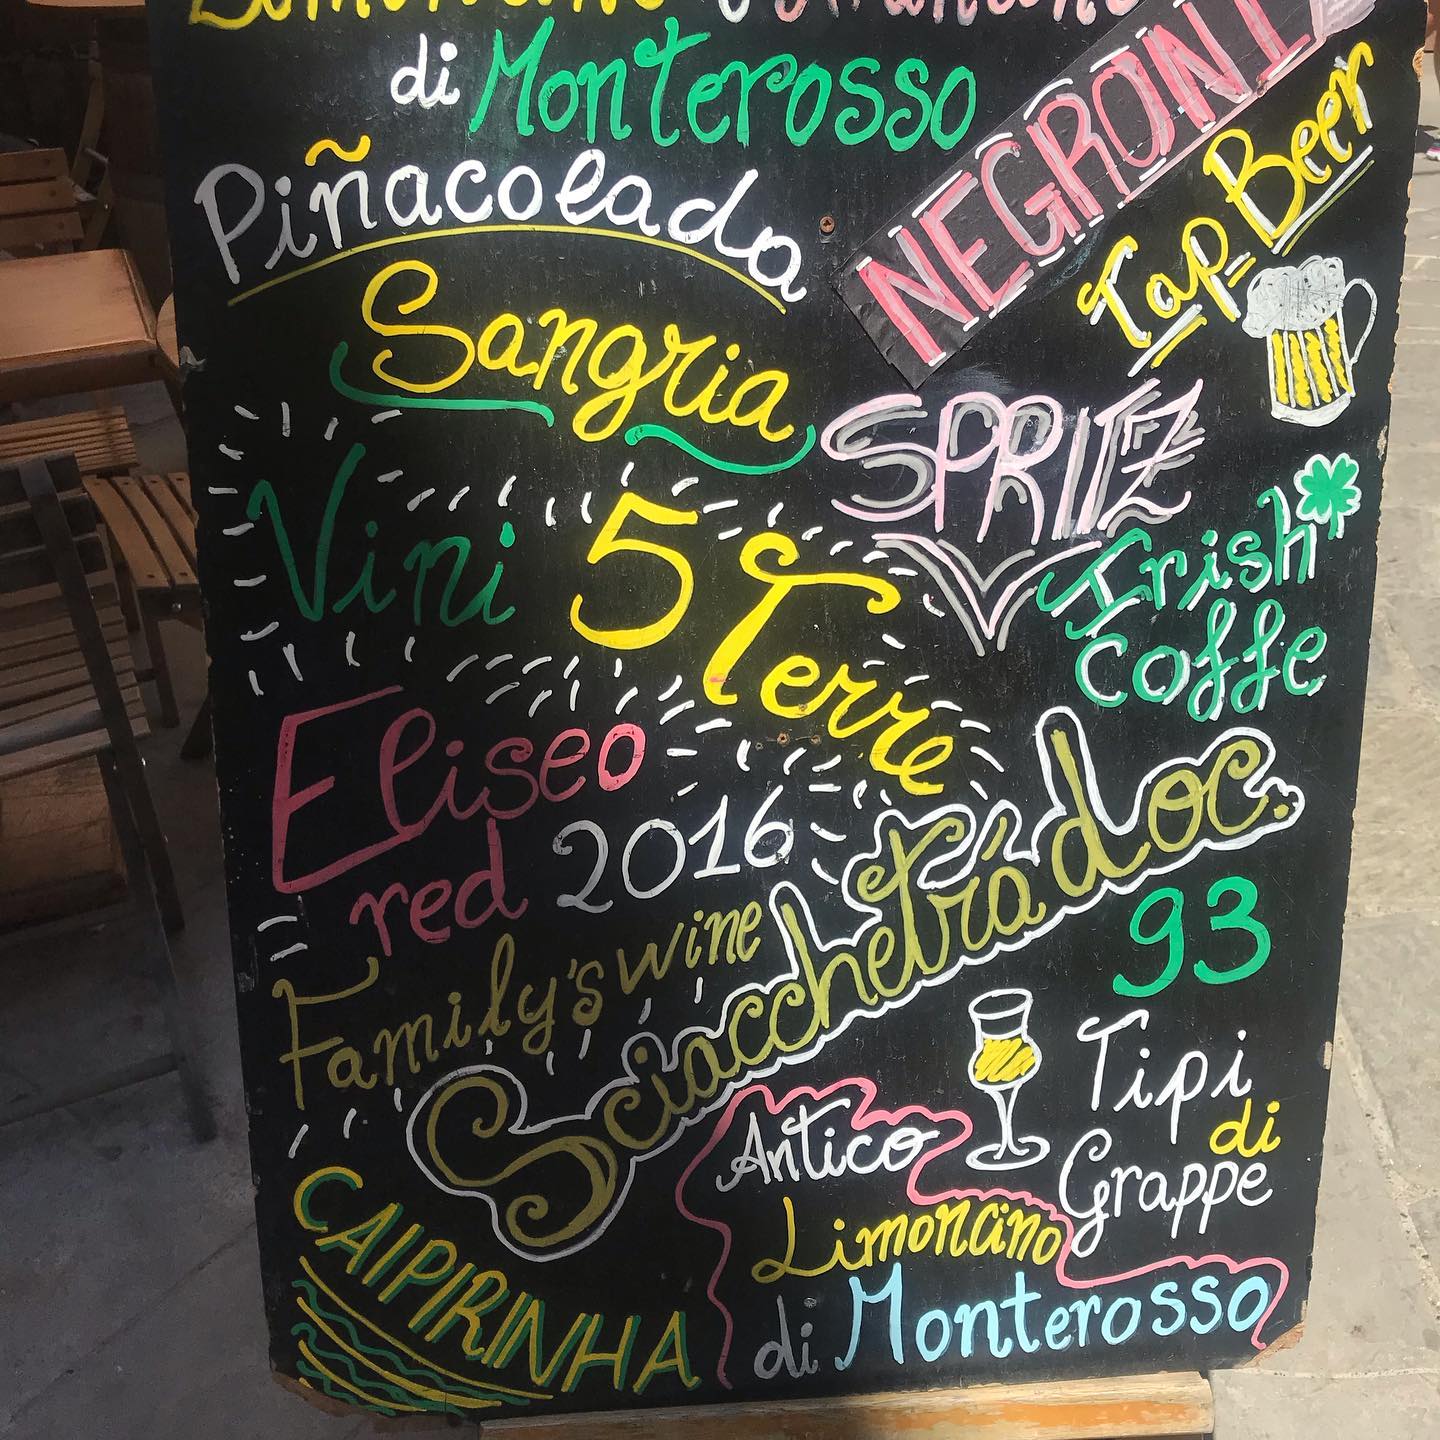 di Monterosso
NEGRONI
Tap Beer
Piñacolada
Sangria
SPRITZ
Vini 5 Terre
Irish
Coffe
Eliseo
red 2016
Family's wine
Sciacchetrá doc.
93 Tipi
di
Grappe
Antico
Limoncino
di Monterosso
CAIPIRINHA